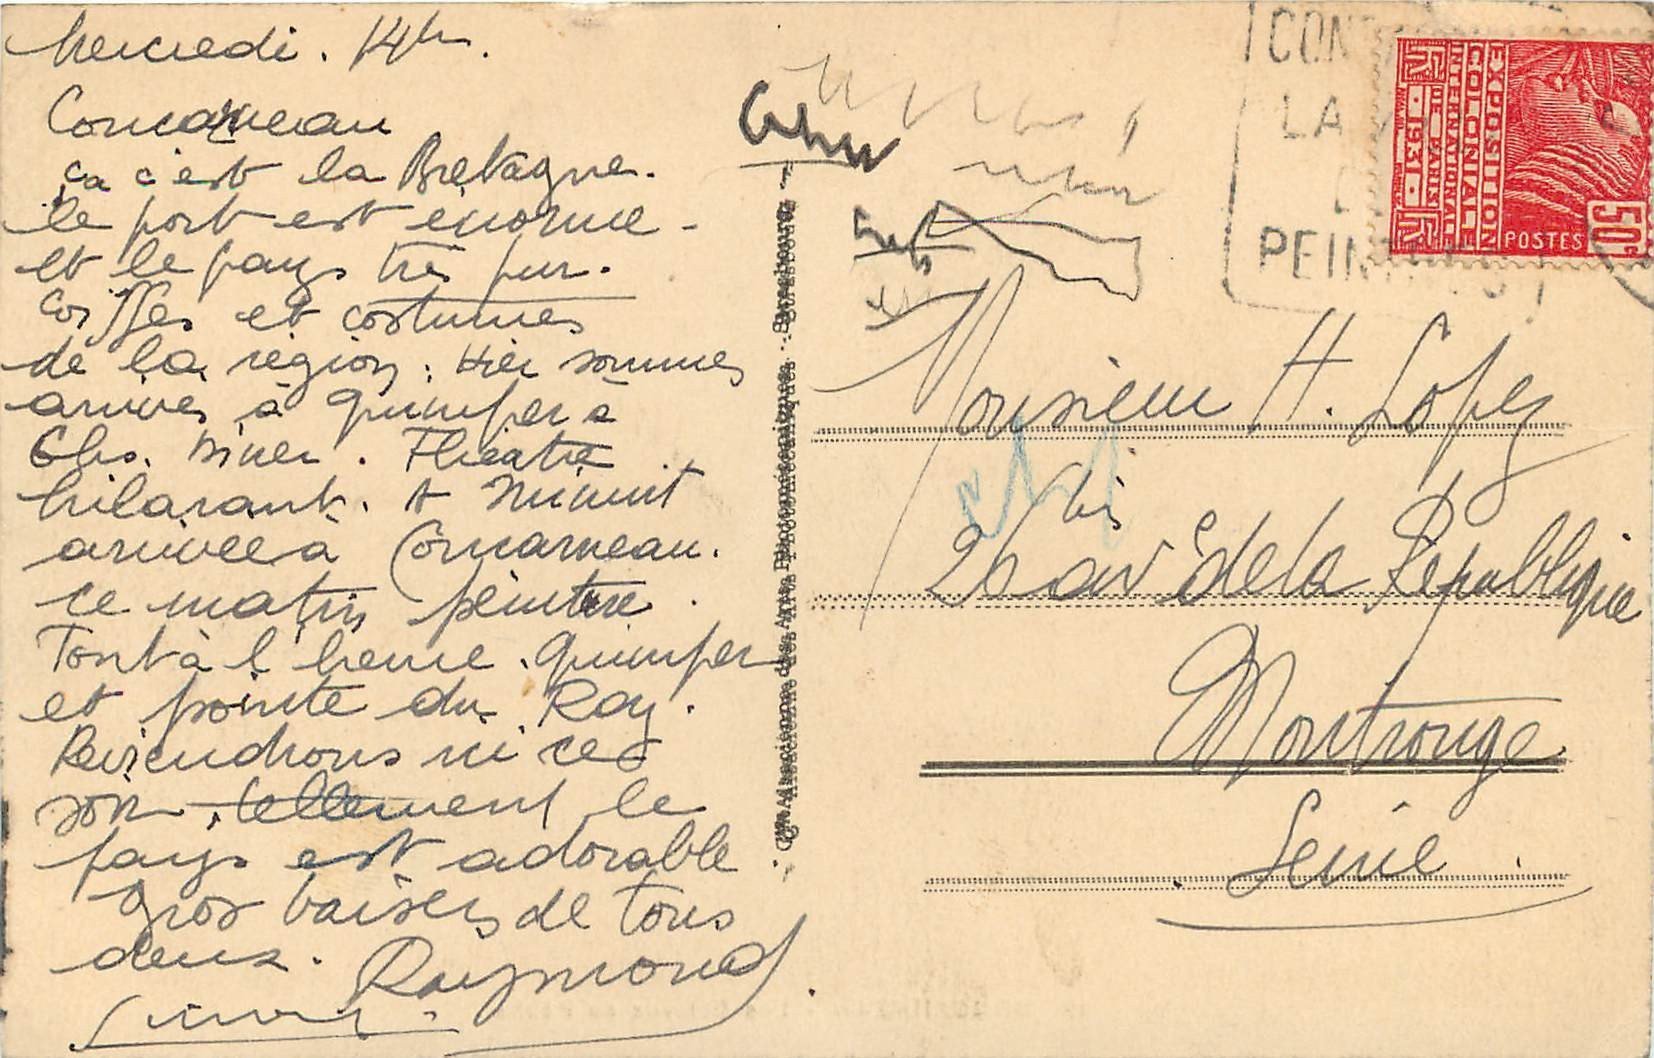 Mercredi. 14h.
Concarneau
ça c'est la Bretagne.
le port est énorme -
et le pays très pur.
Coiffes et costumes
de la région. Hier sommes
arrivés à Quimper à
6hs. Diner. Théatre
hilarant. A minuit
arrivée à Concarneau.
ce matin peinture.
Tout à l'heure. Quimper
et pointe du Raz.
Reviendrons ici ce
soir tellement le
pays est adorable
Gros baisers de tous
deux. Raymond
CON
LA
PEIN
EXPOSITION
COLONIALE
INTERNATIONALE
DE PARIS
1931
POSTES
50c
Monsieur H. Lopez
bis
26 av de la République
Montrouge
Seine